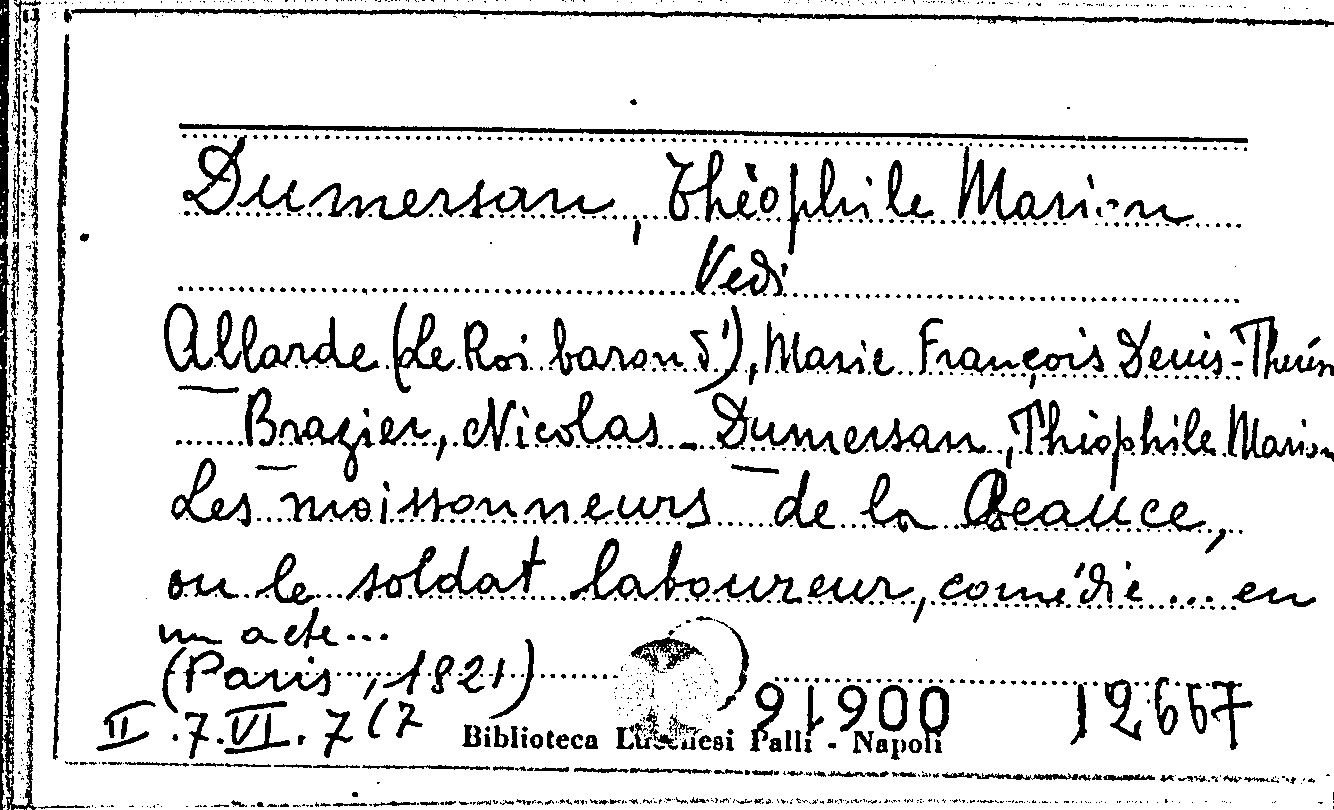 Dumersan, Théophile Marion
Vedi
Allarde (Le Roi baron d'), Marie François Denis-Thérés
Brazier, Nicolas - Dumersan, Théophile Marion
Les moissonneurs de la Beauce,
ou le soldat laboureur, comédie ... en
un acte...
(Paris, 1821)
II.7.VI.7(7 91900 12667
Biblioteca Lucchesi Palli - Napoli